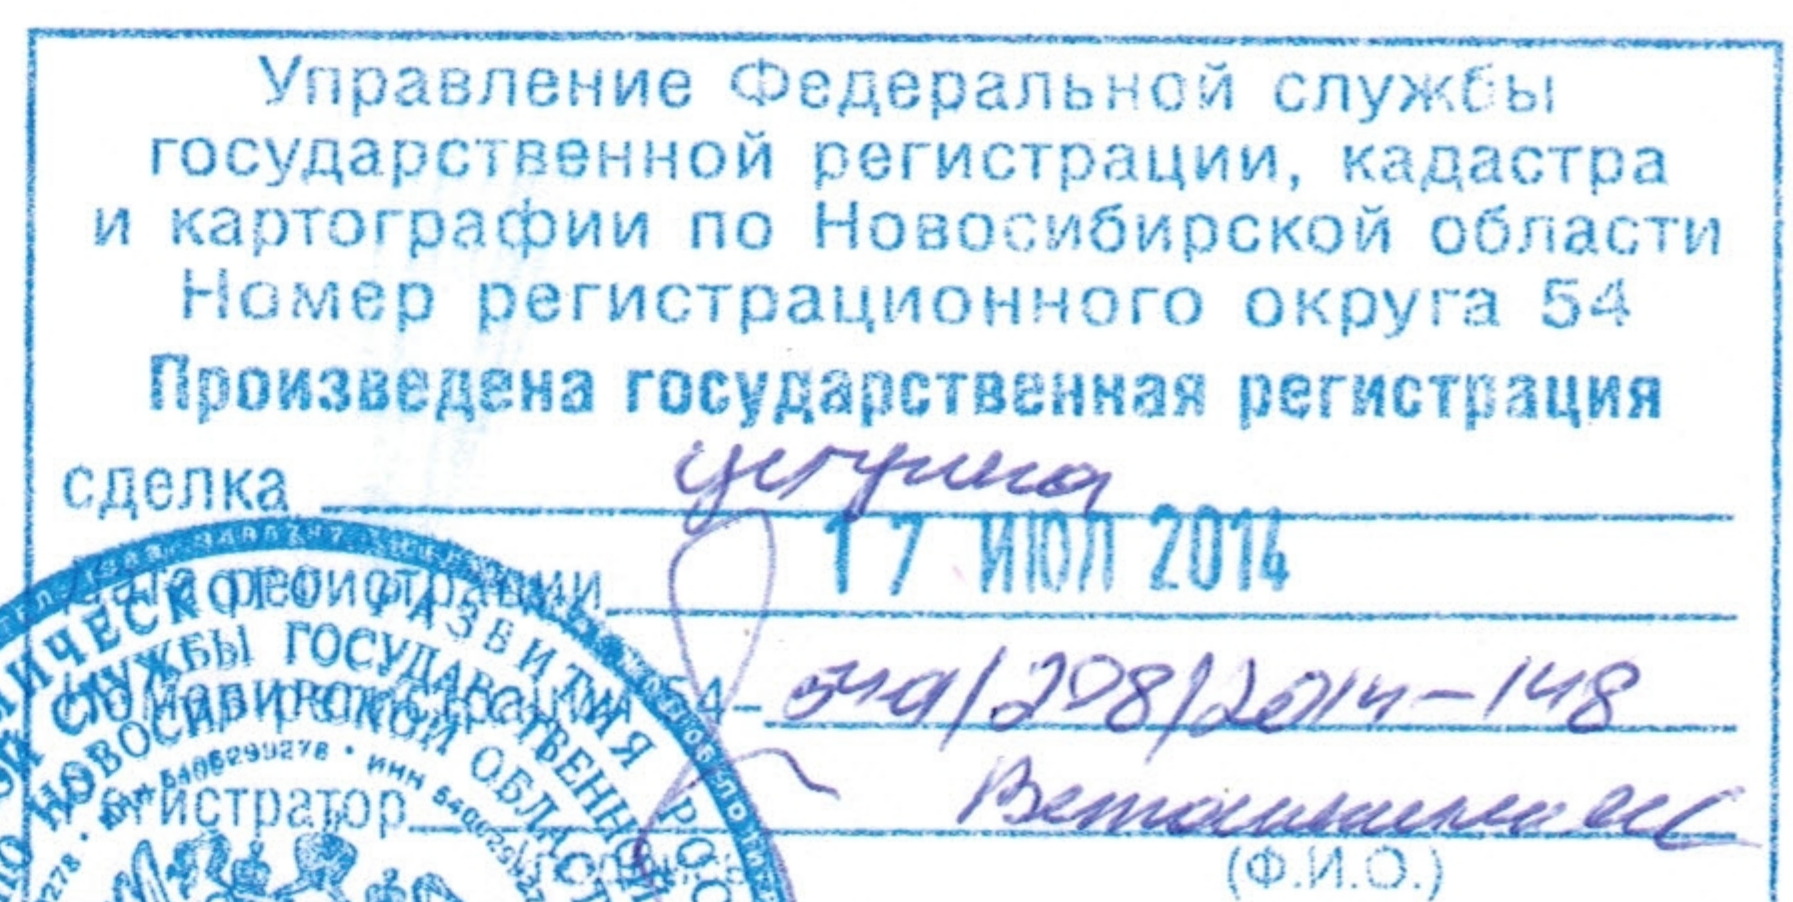 Управление Федеральной службы
государственной регистрации, кадастра
и картографии по Новосибирской области
Номер регистрационного округа 54
Произведена государственная регистрация
сделка уступка
Дата регистрации 17 ИЮЛ 2014
Номер регистрации 54-54-01/208/2014-148
Регистратор
(Ф.И.О.)
РАЗВИТИЯ
СЛУЖБЫ ГОСУДАРСТВЕННОЙ
НОВОСИБИРСКОЙ ОБЛАСТИ
5406299278 • ИНН